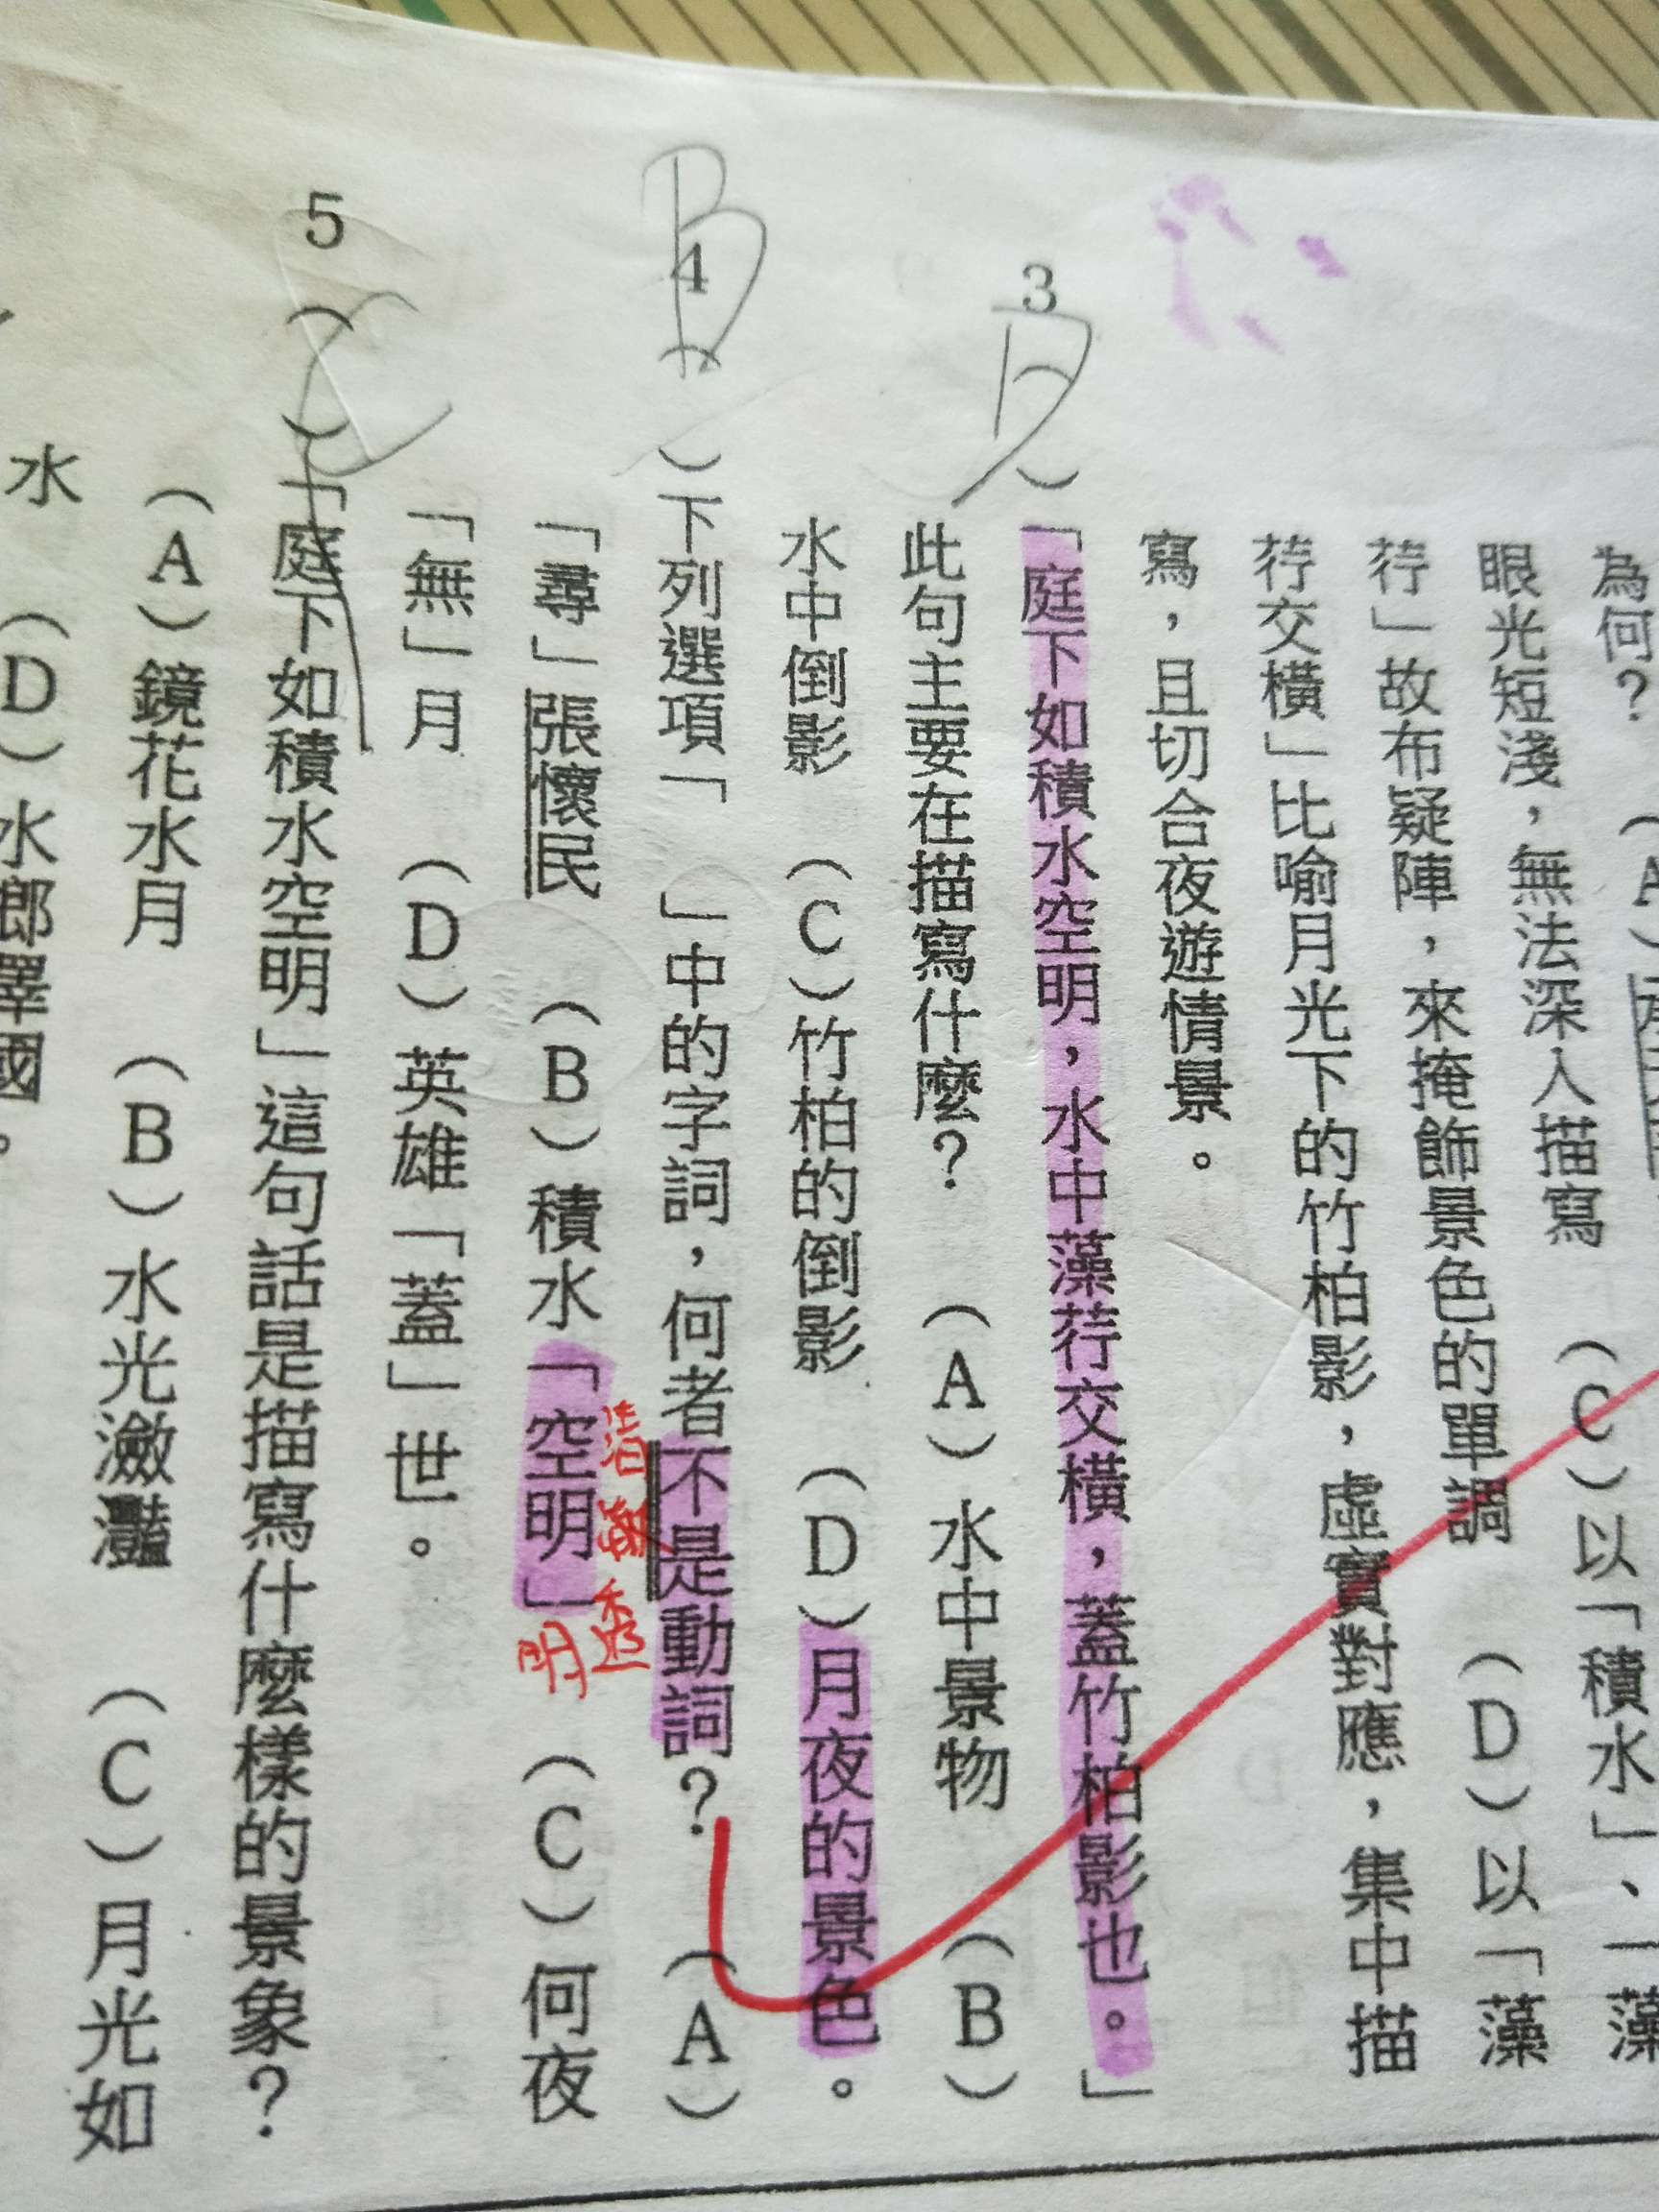 為何？ （A）
眼光短淺，無法深入描寫 （C）以「積水」、「藻
荇」故布疑陣，來掩飾景色的單調 （D）以「藻
荇交橫」比喻月光下的竹柏影，虛實對應，集中描
寫，且切合夜遊情景。
3（D）「庭下如積水空明，水中藻荇交橫，蓋竹柏影也。」
此句主要在描寫什麼？ （A）水中景物 （B）
水中倒影 （C）竹柏的倒影 （D）月夜的景色。
4（B）下列選項「 」中的字詞，何者不是動詞？ （A）
「尋」張懷民 （B）積水「空明」 （C）何夜
透
明
「無」月 （D）英雄「蓋」世。
5（C）「庭下如積水空明」這句話是描寫什麼樣的景象？
（A）鏡花水月 （B）水光瀲灩 （C）月光如
水 （D）水鄉澤國。